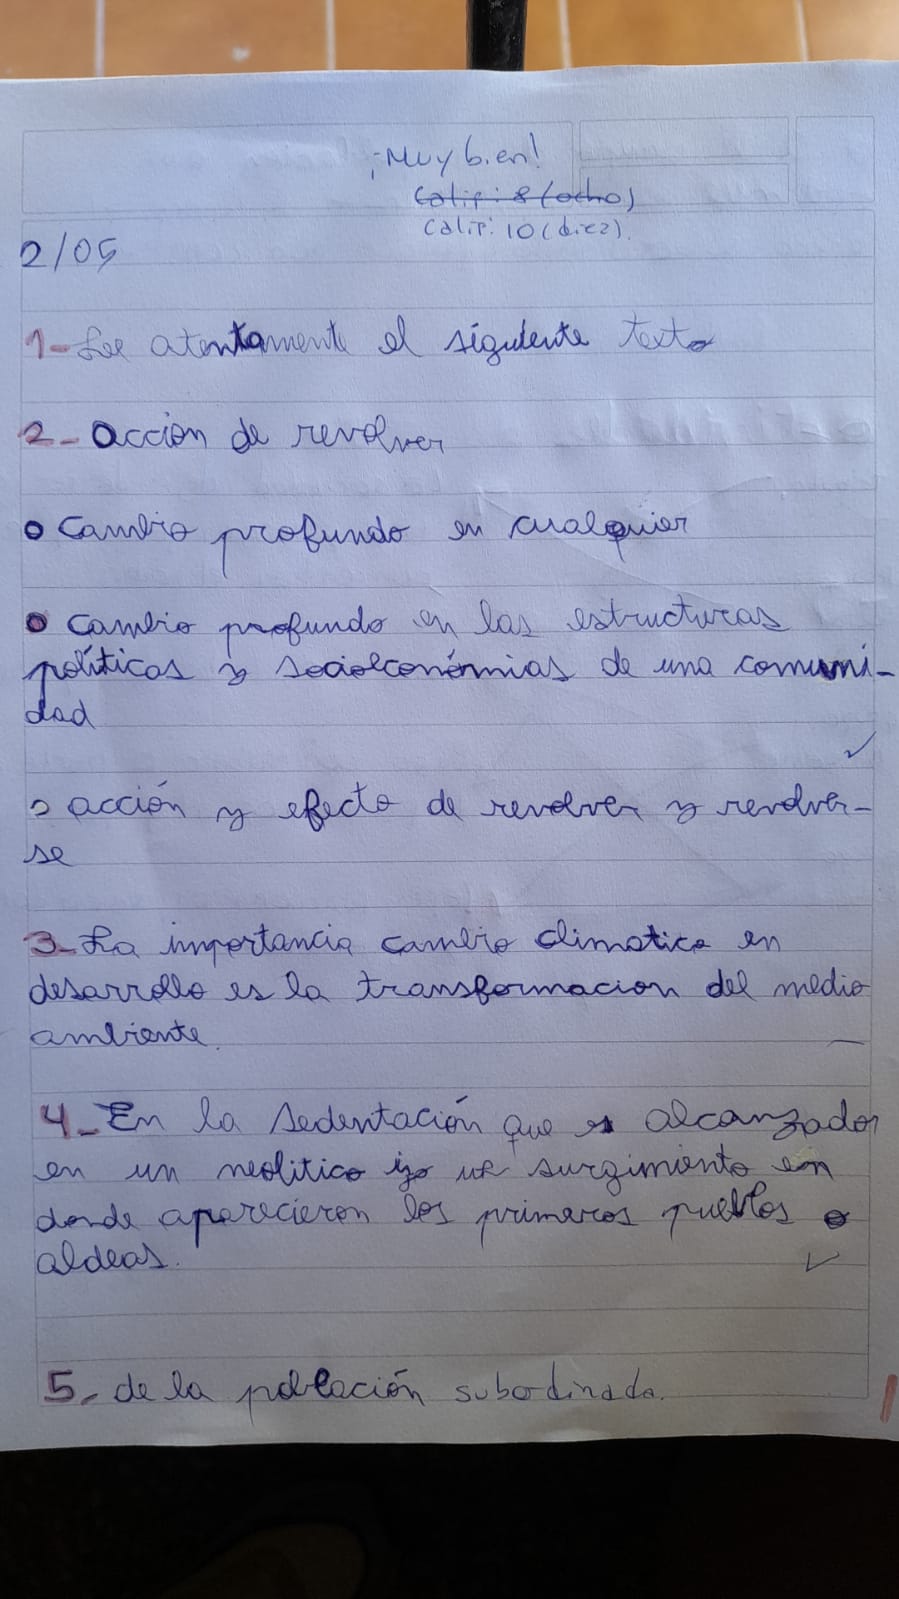 ¡Muy bien!
Calif: 8 (ocho)
Calif: 10 (diez).
2/05
1- Lee atentamente el siguiente texto
2- acción de revolver
• Cambio profundo en cualquier
• Cambio profundo en las estructuras
políticas y socioeconómias de una comuni-
dad
• acción y efecto de revolver y revolver-
se
3- La importancia cambio climatico en
desarrollo es la transformacion del medio
ambiente.
4- En la sedentación que es alcanzador
en un neolitico surgimiento en
donde aparecieron los primeros pueblos o
aldeas.
5- de la población subordinada.